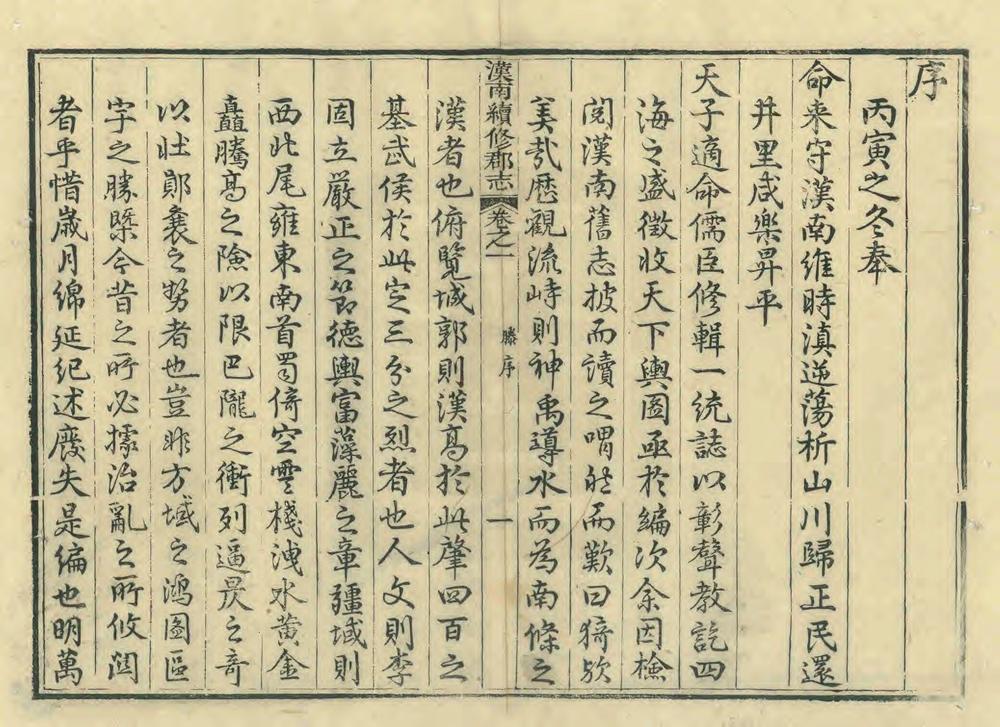 序
丙寅之冬奉
命來守漢南維時滇逆蕩析山川歸正民還
井里咸樂昇平
天子適命儒臣修輯一統誌以彰聲教訖四
海之盛徵收天下輿圖亟於編次余因檢
閱漢南舊志披而讀之喟然而歎曰猗歟
美哉歷觀流峙則神禹導水而為南條之
漢南續修郡志 卷之一 滕序 一
漢者也俯覽城郭則漢高於此肇四百之
基武侯於此定三分之烈者也人文則李
固立嚴正之節德輿富藻麗之章疆域則
西北尾雍東南首蜀倚空雲棧洩水黃金
矗騰高之險以限巴隴之衝列逼景之奇
以壯鄖襄之勢者也豈非方域之鴻圖區
宇之勝槩今昔之所必據治亂之所攸關
者乎惜歲月綿延紀述廢失是編也明萬